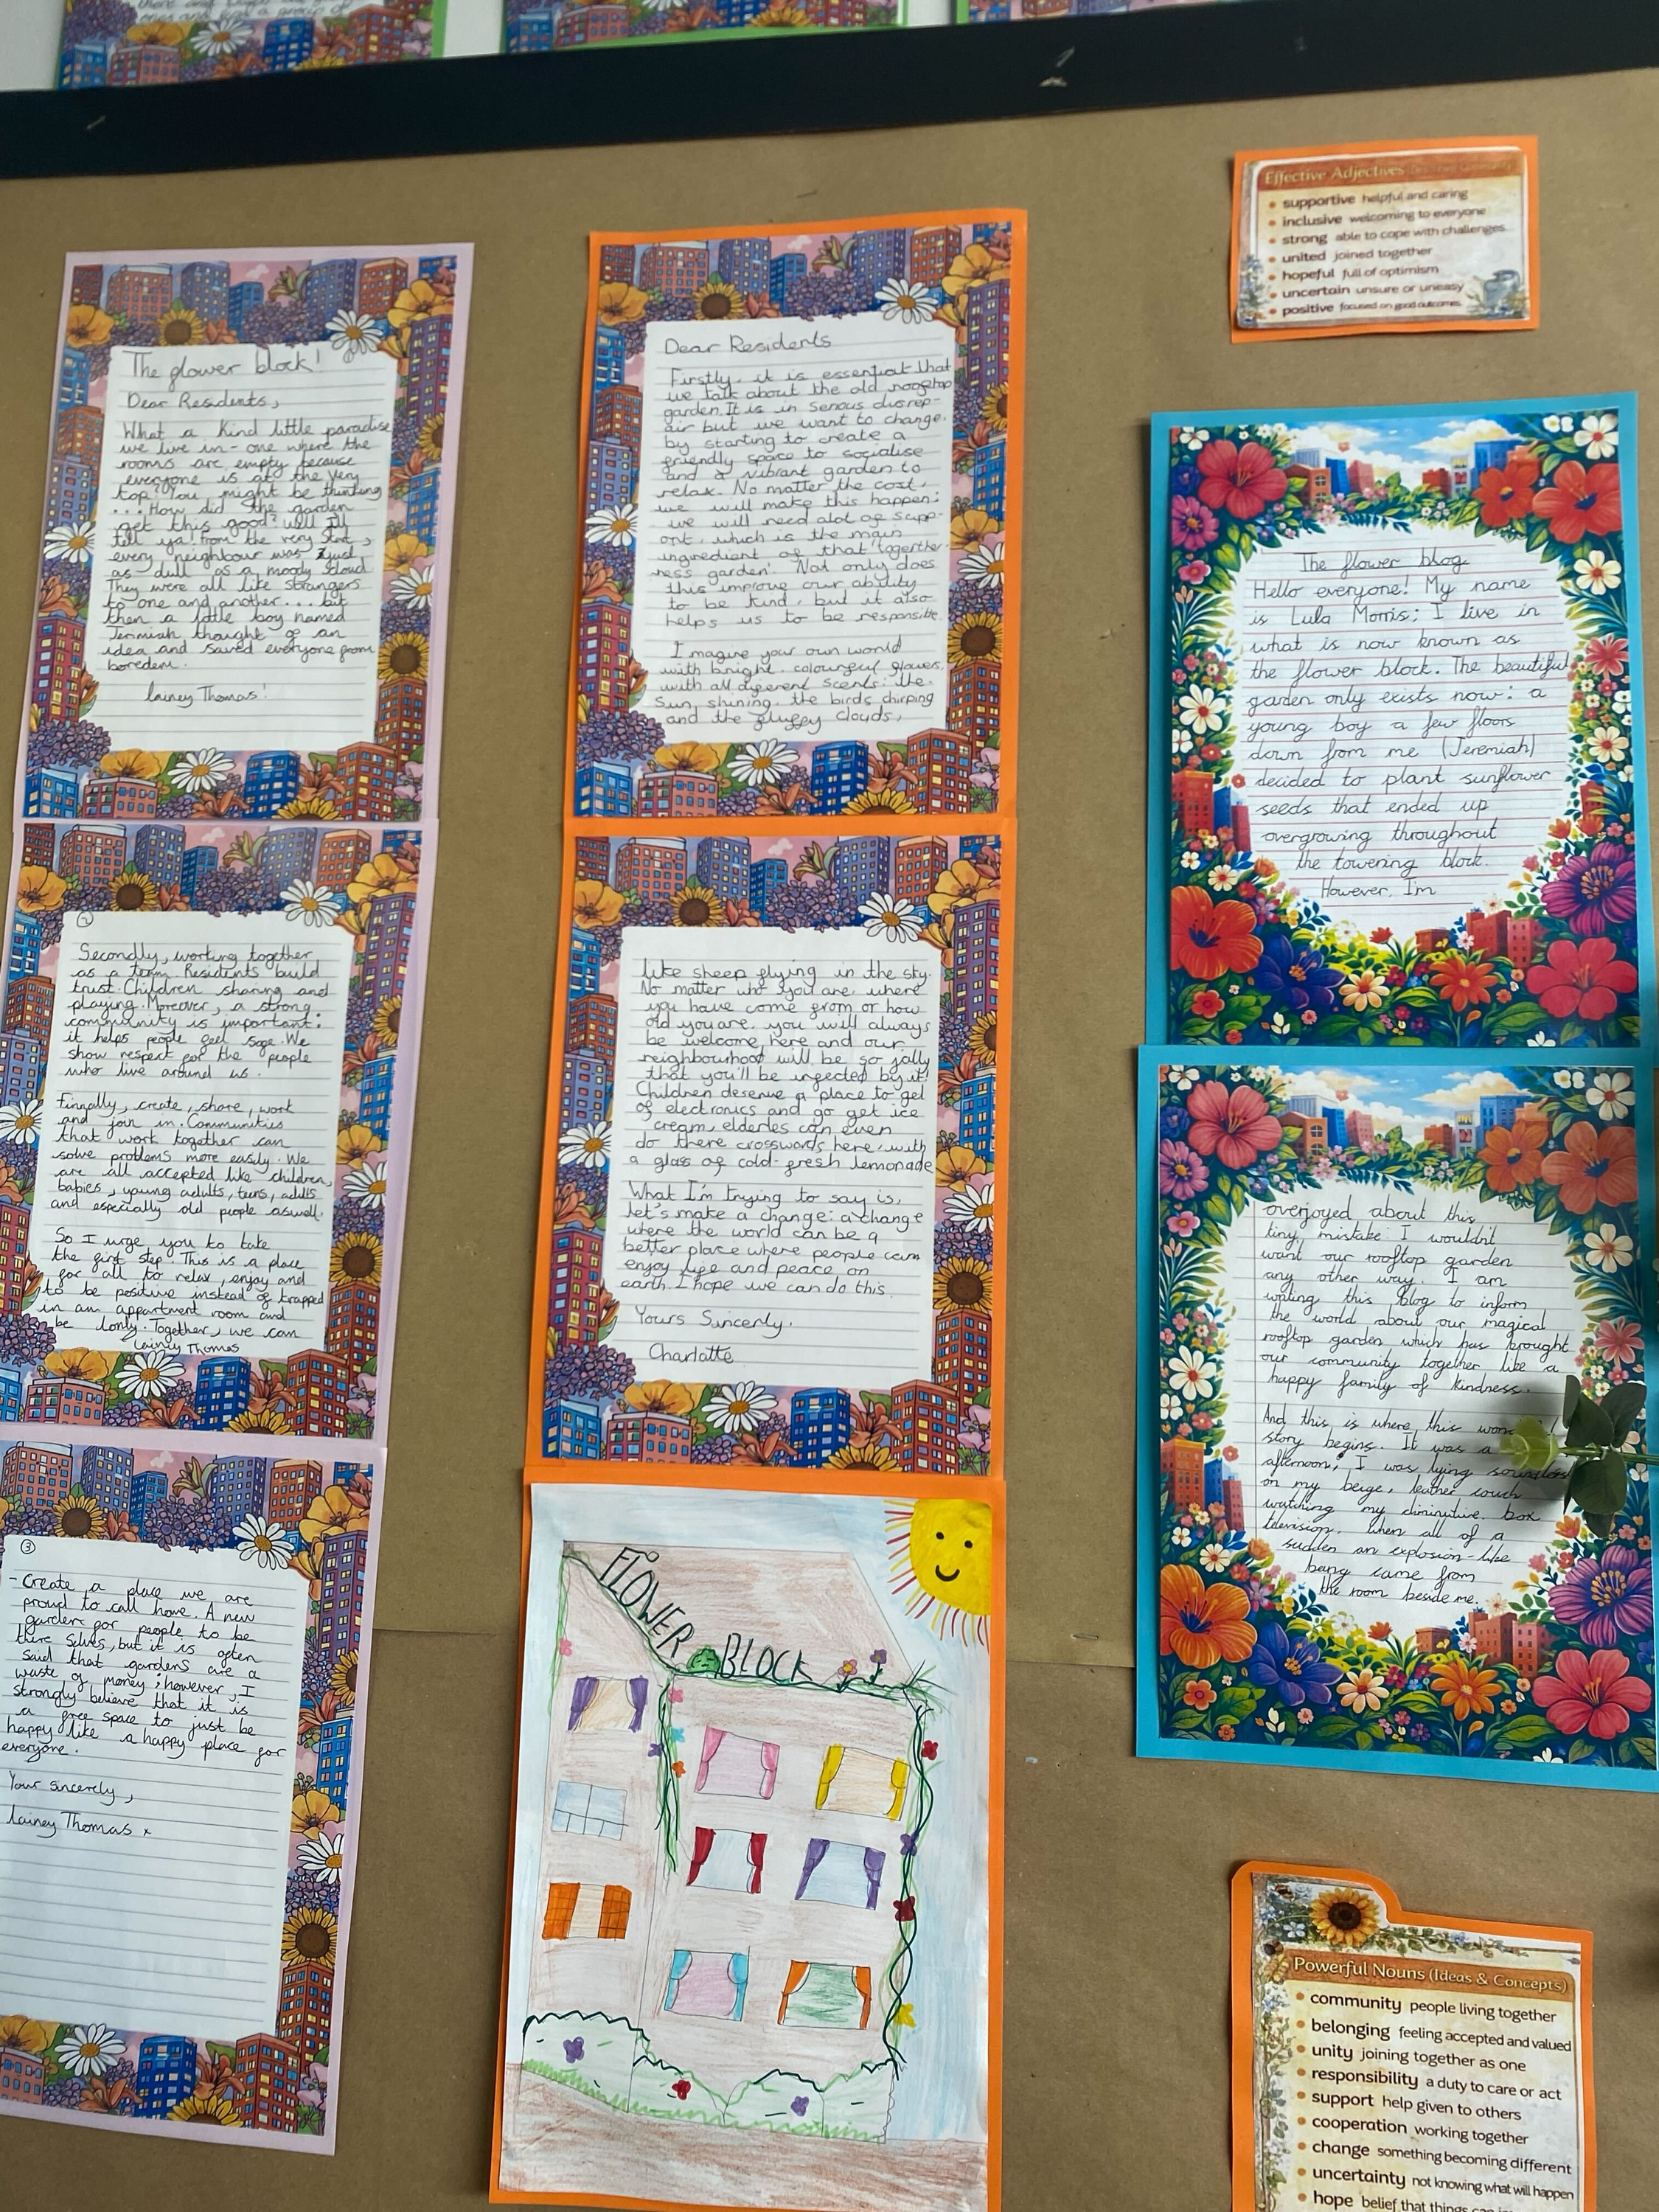 The flower block!
Dear Residents,
What a kind little paradise
we live in - one where the
rooms are empty because
everyone is at the very
top! You might be thinking
... How did the garden
get this good? Well I'll
tell ya! From the very start,
every neighbour was just
as dull as a moody cloud
They were all like strangers
to one and another... but
then a little boy named
Jerimiah thought of an
idea and saved everyone from
boredem.
lainey Thomas!
2
Secondly, working together
as a team. Residents build
trust. Children sharing and
playing. Moreover, a strong
community is important:
it helps people feel safe. We
show respect for the people
who live around us.
Finnally, create, share, work
and join in. Communities
that work together can
solve problems more easily. We
are all accepted like children,
babies, young adults, teens, adults
and especially old people aswell.
So I urge you to take
the first step. This is a place
for all to relax, enjoy and
to be positive instead of trapped
in am appartment room and
be lonly. Together, we can
lainey Thomas
3
- Create a place we are
proud to call home. A new
garden for people to be
there selves, but it is often
said that gardens are a
waste of money; however, I
strongly believe that it is
a free space to just be
happy like a happy place for
everyone.
Your sincerely,
lainey Thomas x
Dear Residents
Firstly, it is essential that
we talk about the old rooftop
garden. It is in serious disrep-
air but we want to change.
by starting to create a
friendly space to socialise
and a vibrant garden to
relax. No matter the cost,
we will make this happen:
we will need alot of supp-
ort, which is the main
ingredient of that 'together-
ness garden'. Not only does
this improve our ability
to be kind, but it also
helps us to be responsible.
Imagine your own world
with bright, colourful flowers,
with all different scents: the
sun shining, the birds chirping
and the fluffy clouds,
like sheep flying in the sky.
No matter who you are, where
you have come from or how
old you are, you will always
be welcome here and our
neighbourhood will be so jolly
that you'll be infected by it!
Children deserve a place to get
of electronics and go get ice
cream, elderles can even
do there crosswords here, with
a glass of cold-fresh lemonade
What I'm trying to say is,
let's make a change: a change
where the world can be a
better place where people can
enjoy life and peace on
earth. I hope we can do this.
Yours Sincerly,
Charlotte
FLOWER BLOCK
Effective Adjectives
• supportive helpful and caring
• inclusive welcoming to everyone
• strong able to cope with challenges
• united joined together
• hopeful full of optimism
• uncertain unsure or uneasy
• positive focused on good outcomes
The flower blog.
Hello everyone! My name
is Lula Morris; I live in
what is now known as
the flower block. The beautiful
garden only exists now: a
young boy a few floors
down from me (Jeremiah)
decided to plant sunflower
seeds that ended up
overgrowing throughout
the towering block.
However, I'm
overjoyed about this
tiny mistake: I wouldn't
want our rooftop garden
any other way. I am
writing this blog to inform
the world about our magical
rooftop garden which has brought
our community together like a
happy family of kindness.
And this is where this
story begins. It was a
afternoon; I was lying
on my beige, leather couch
watching my diminutive box
television. When all of a
sudden an explosion-like
bang came from
the room beside me.
Powerful Nouns (Ideas & Concepts)
• community people living together
• belonging feeling accepted and valued
• unity joining together as one
• responsibility a duty to care or act
• support help given to others
• cooperation working together
• change something becoming different
• uncertainty not knowing what will happen
• hope belief that things can